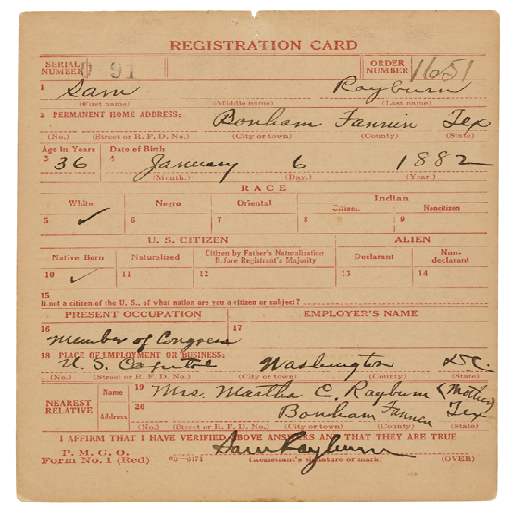 REGISTRATION CARD
SERIAL NUMBER 91 ORDER NUMBER 1651
1 Sam Rayburn
(First name) (Middle name) (Last name)
2 PERMANENT HOME ADDRESS: Bonham Fannin Tex
(No.) (Street or R. F. D. No.) (City or town) (County) (State)
Age in Years Date of Birth
3 36 4 January 6 1882
(Month.) (Day.) (Year.)
RACE
White Negro Oriental Indian
Citizen Noncitizen
5 ✓ 6 7 8 9
U. S. CITIZEN ALIEN
Native Born Naturalized Citizen by Father's Naturalization Before Registrant's Majority Declarant Non-declarant
10 ✓ 11 12 13 14
15
If not a citizen of the U. S., of what nation are you a citizen or subject?
PRESENT OCCUPATION EMPLOYER'S NAME
16 Member of Congress 17
18 PLACE OF EMPLOYMENT OR BUSINESS:
U. S. Capitol Washington D.C.
(No.) (Street or R. F. D. No.) (City or town) (County) (State)
NEAREST RELATIVE Name 19 Mrs. Martha C. Rayburn (Mother)
Address 20 Bonham Fannin Tex
(No.) (Street or R. F. D. No.) (City or town) (County) (State)
I AFFIRM THAT I HAVE VERIFIED ABOVE ANSWERS AND THAT THEY ARE TRUE
P. M. G. O.
Form No. 1 (Red) 03—6171 Sam Rayburn
(Registrant's signature or mark) (OVER)